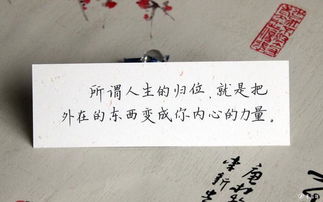 所谓人生的归位，就是把
外在的东西变成你内心的力量。